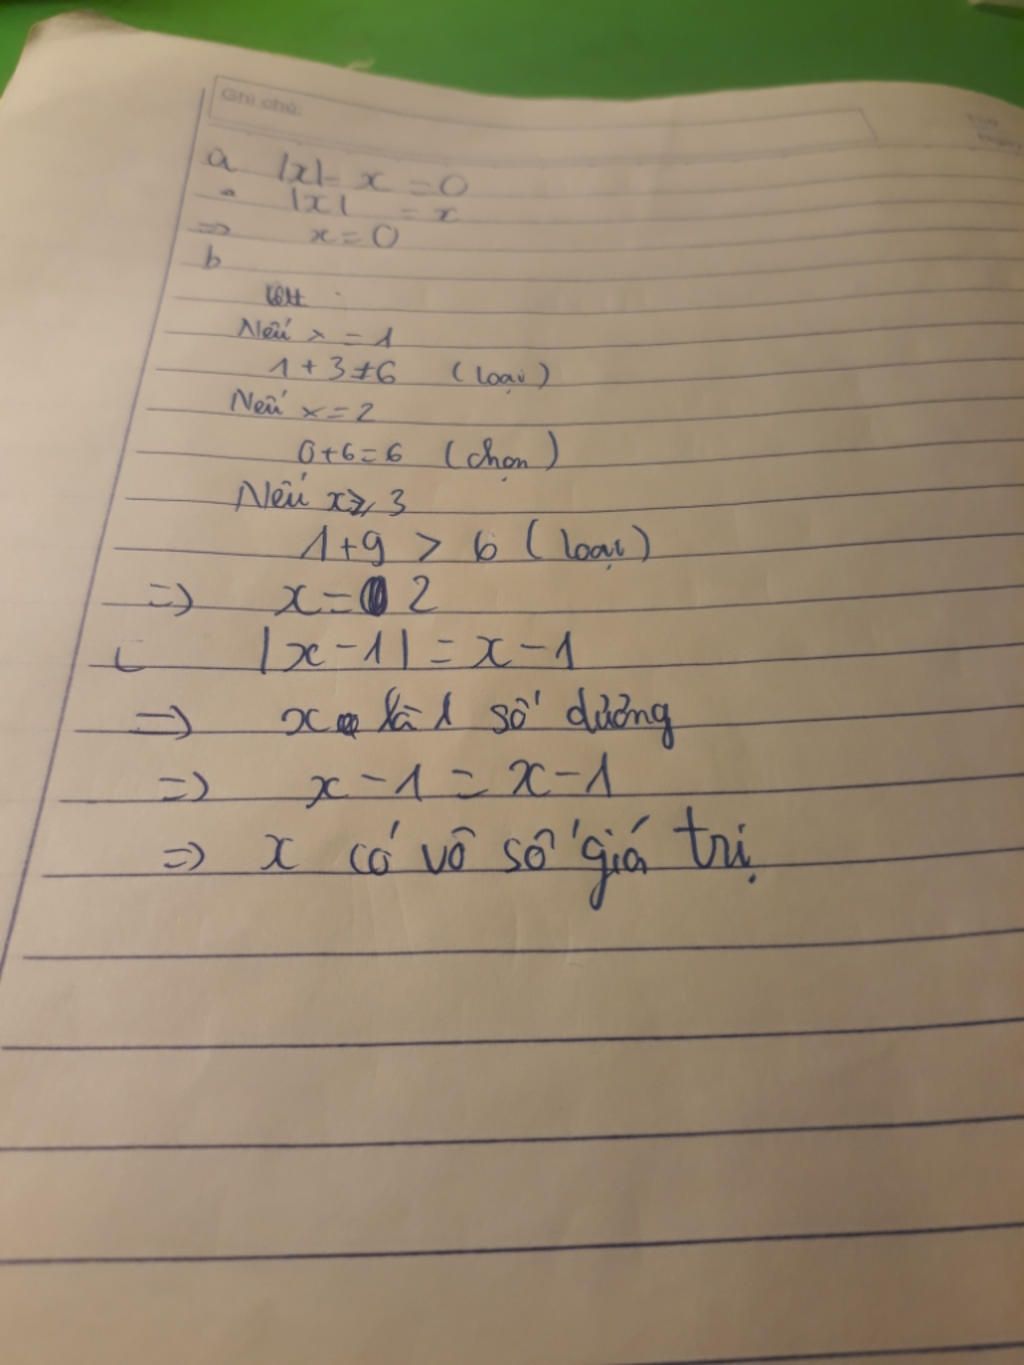 Ghi chú:
a |x| - x = 0
|x| = x
=> x = 0
b
Nếu x = 1
1 + 3 ≠ 6 (loại)
Nếu x = 2
0 + 6 = 6 (chọn)
Nếu x ⩾ 3
1 + 9 > 6 (loại)
=> x = 2
c |x - 1| = x - 1
=> x là 1 số dương
=> x - 1 = x - 1
=> x có vô số giá trị